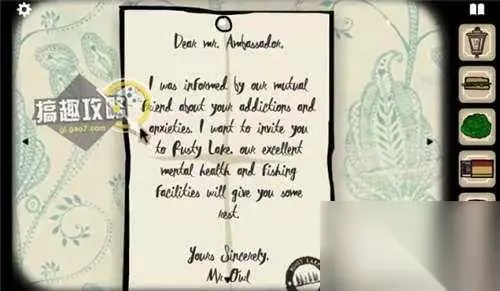 Dear mr. Ambassador,
I was informed by our mutual
friend about your addictions and
anxieties. I want to invite you
to Rusty Lake. our excellent
mental health and fishing
facilities will give you some
rest.
Yours Sincerely,
Mr. Owl
搞趣攻略
gl.gao7.com
RUSTY LAKE